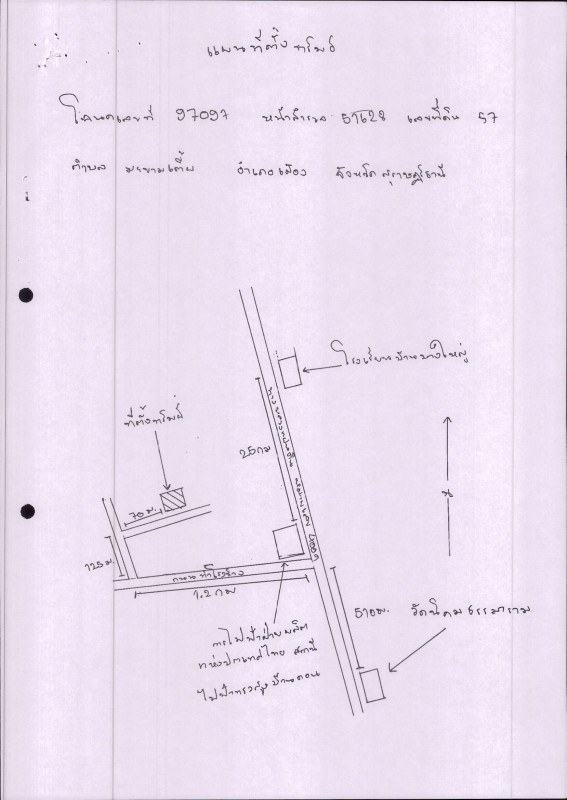 แผนที่ตั้งทรัพย์
โฉนดเลขที่ 97097 หน้าสำรวจ 51628 เลขที่ดิน 57
ตำบล มะขามเตี้ย อำเภอเมือง จังหวัด สุราษฎร์ธานี
โรงเรียนบ้านบางใหญ่
ที่ตั้งทรัพย์
25 กม
ทางหลวงแผ่นดิน หมายเลข 4009
น
70 ม.
125 ม.
ถนน ท่าโรงช้าง
1.2 กม
510 ม.
วัดนิคมธรรมาราม
การไฟฟ้าฝ่ายผลิต
แห่งประเทศไทย สถานี
ไฟฟ้าแรงสูง บ้านดอน